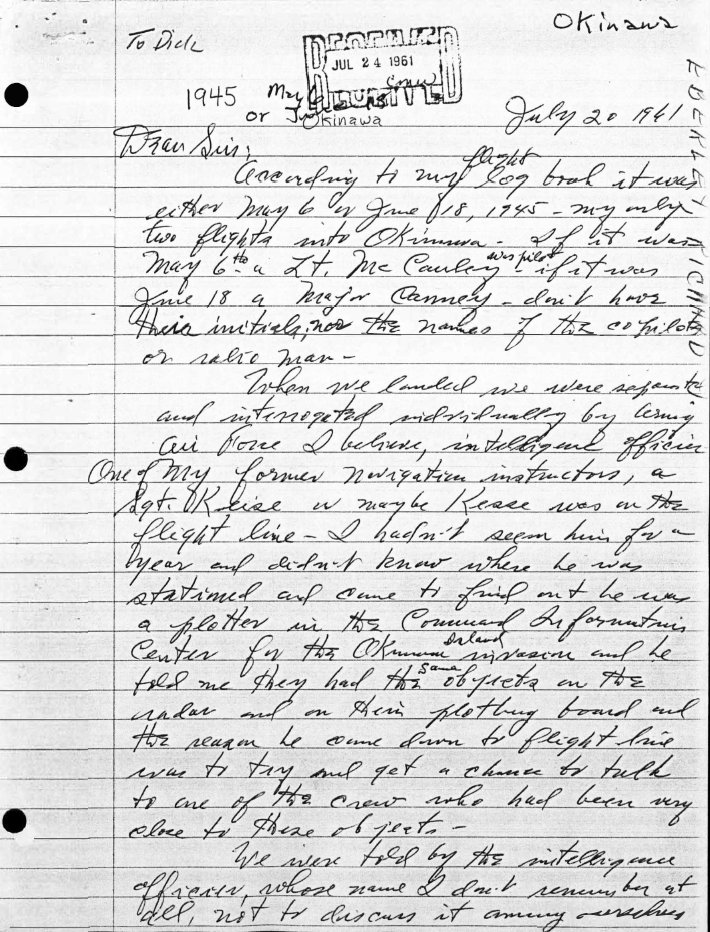 Okinawa
To Dick
RECEIVED
JUL 24 1961
1945 May 6 crew
or June 18
Okinawa
July 20 1961
EBERLEY RICHARD
Dear Sir;
According to my flight log book it was
either May 6 or June 18, 1945 - my only
two flights into Okinawa - If it was
May 6th a Lt. McCauley was pilot - if it was
June 18 a Major Canney - don't have
their initials, nor the names of the co pilots
or radio man -
When we landed we were separated
and interrogated individually by Army
Air Force I believe, intelligence officers
One of my former Navigation instructors, a
Sgt. Kreise or maybe Kesse was on the
flight line - I hadn't seem him for a
year and didn't know where he was
stationed and came to find out he was
a plotter in the Command Information
Center for the Okinawa Island invasion and he
told me they had the same objects on the
radar and on their plotting board and
the reason he came down to flight line
was to try and get a chance to talk
to one of the crew who had been very
close to these objects -
We were told by the intelligence
officer, whose name I don't remember at
all, not to discuss it among ourselves